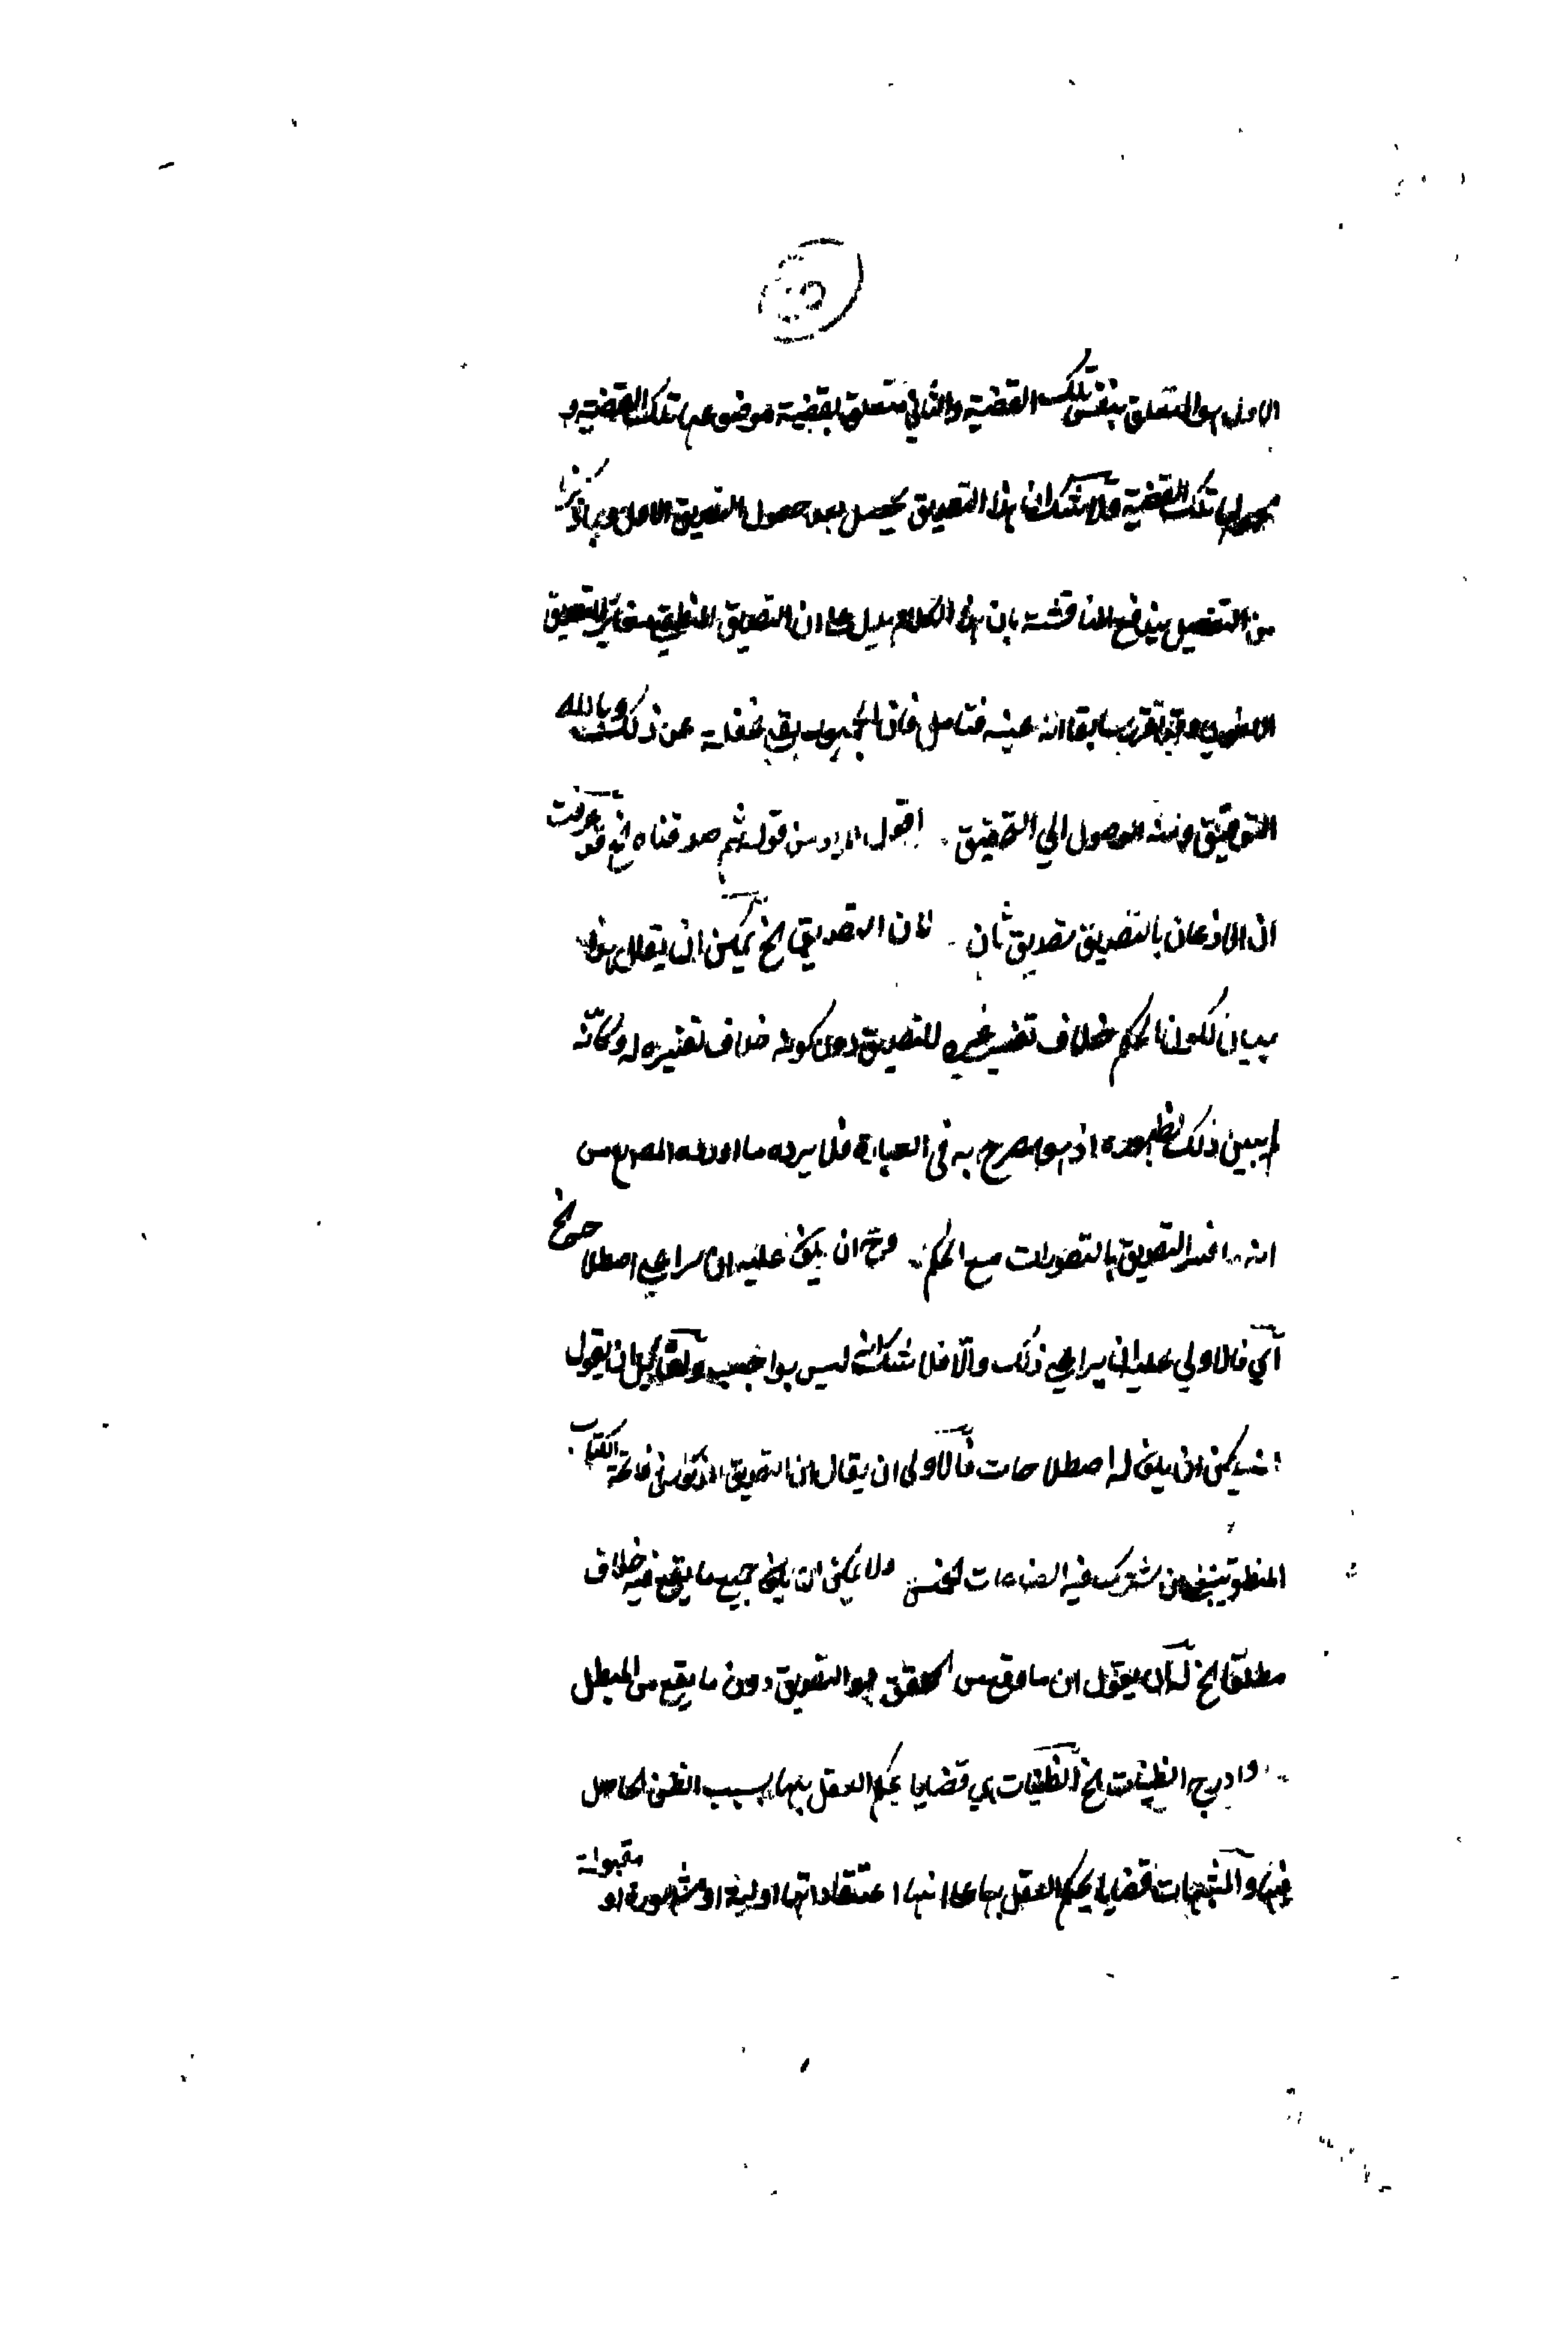 الاول هو المتعلق بنفس تلك القضية والثاني متعلق بقضية موضوعها تلك القضية و
محمولها تلك القضية ولا شك ان هذا التصديق يحصل بعد حصول التصديق الاول وبما ذكرنا
من التفصيل يندفع المناقشة بان هذا الكلام يدل على ان التصديق المنطقي مغاير للتصديق
سابقا انه عينه فتامل فان الجمهور بقي غفلة عن ذلك وبالله
التوفيق ومنه الوصول الي التحقيق اقول المراد من قوله ثم صدقناه الخ قد عرفت
ان الاذعان بالتصديق تصديق ثان لان التصديق الخ يمكن ان يقال هذا
بيان لكون الحكم خلاف تفسير غيره للتصديق دون كونه خلاف تفسيره له وكانه
لم يبين ذلك لظهوره اذ هو مصرح به في العبارة فلا يرده ما اورده المص من
انه فسر التصديق بالتصورات مع الحكم وح ان يلخ عليه ان يراعي اصطلاحه الخ
اي فالاولي عليه ان يراعي ذلك والا فلا شك انه ليس بواجب ولقائل ان يقول
انه يمكن ان له اصطلاحات فالاولى ان يقال ان التصديق المذكور في فاتحة الكتاب
المنطق ينبغي ان يشترك فيه الصناعات الخمس ولا يمكن ان جميع ما يقع فيه خلاف
مطلقا الخ له ان يقول ان ما وقع من المحقق هو التصديق دون ما يقع من المبطل
وادرج الظنيات الخ الظنيات هي قضايا يحكم العقل بها بسبب الظن الحاصل
فيها والمشبهات قضايا يحكم العقل بها على انها اعتقاداتها اولية او مشهورة او مقبولة